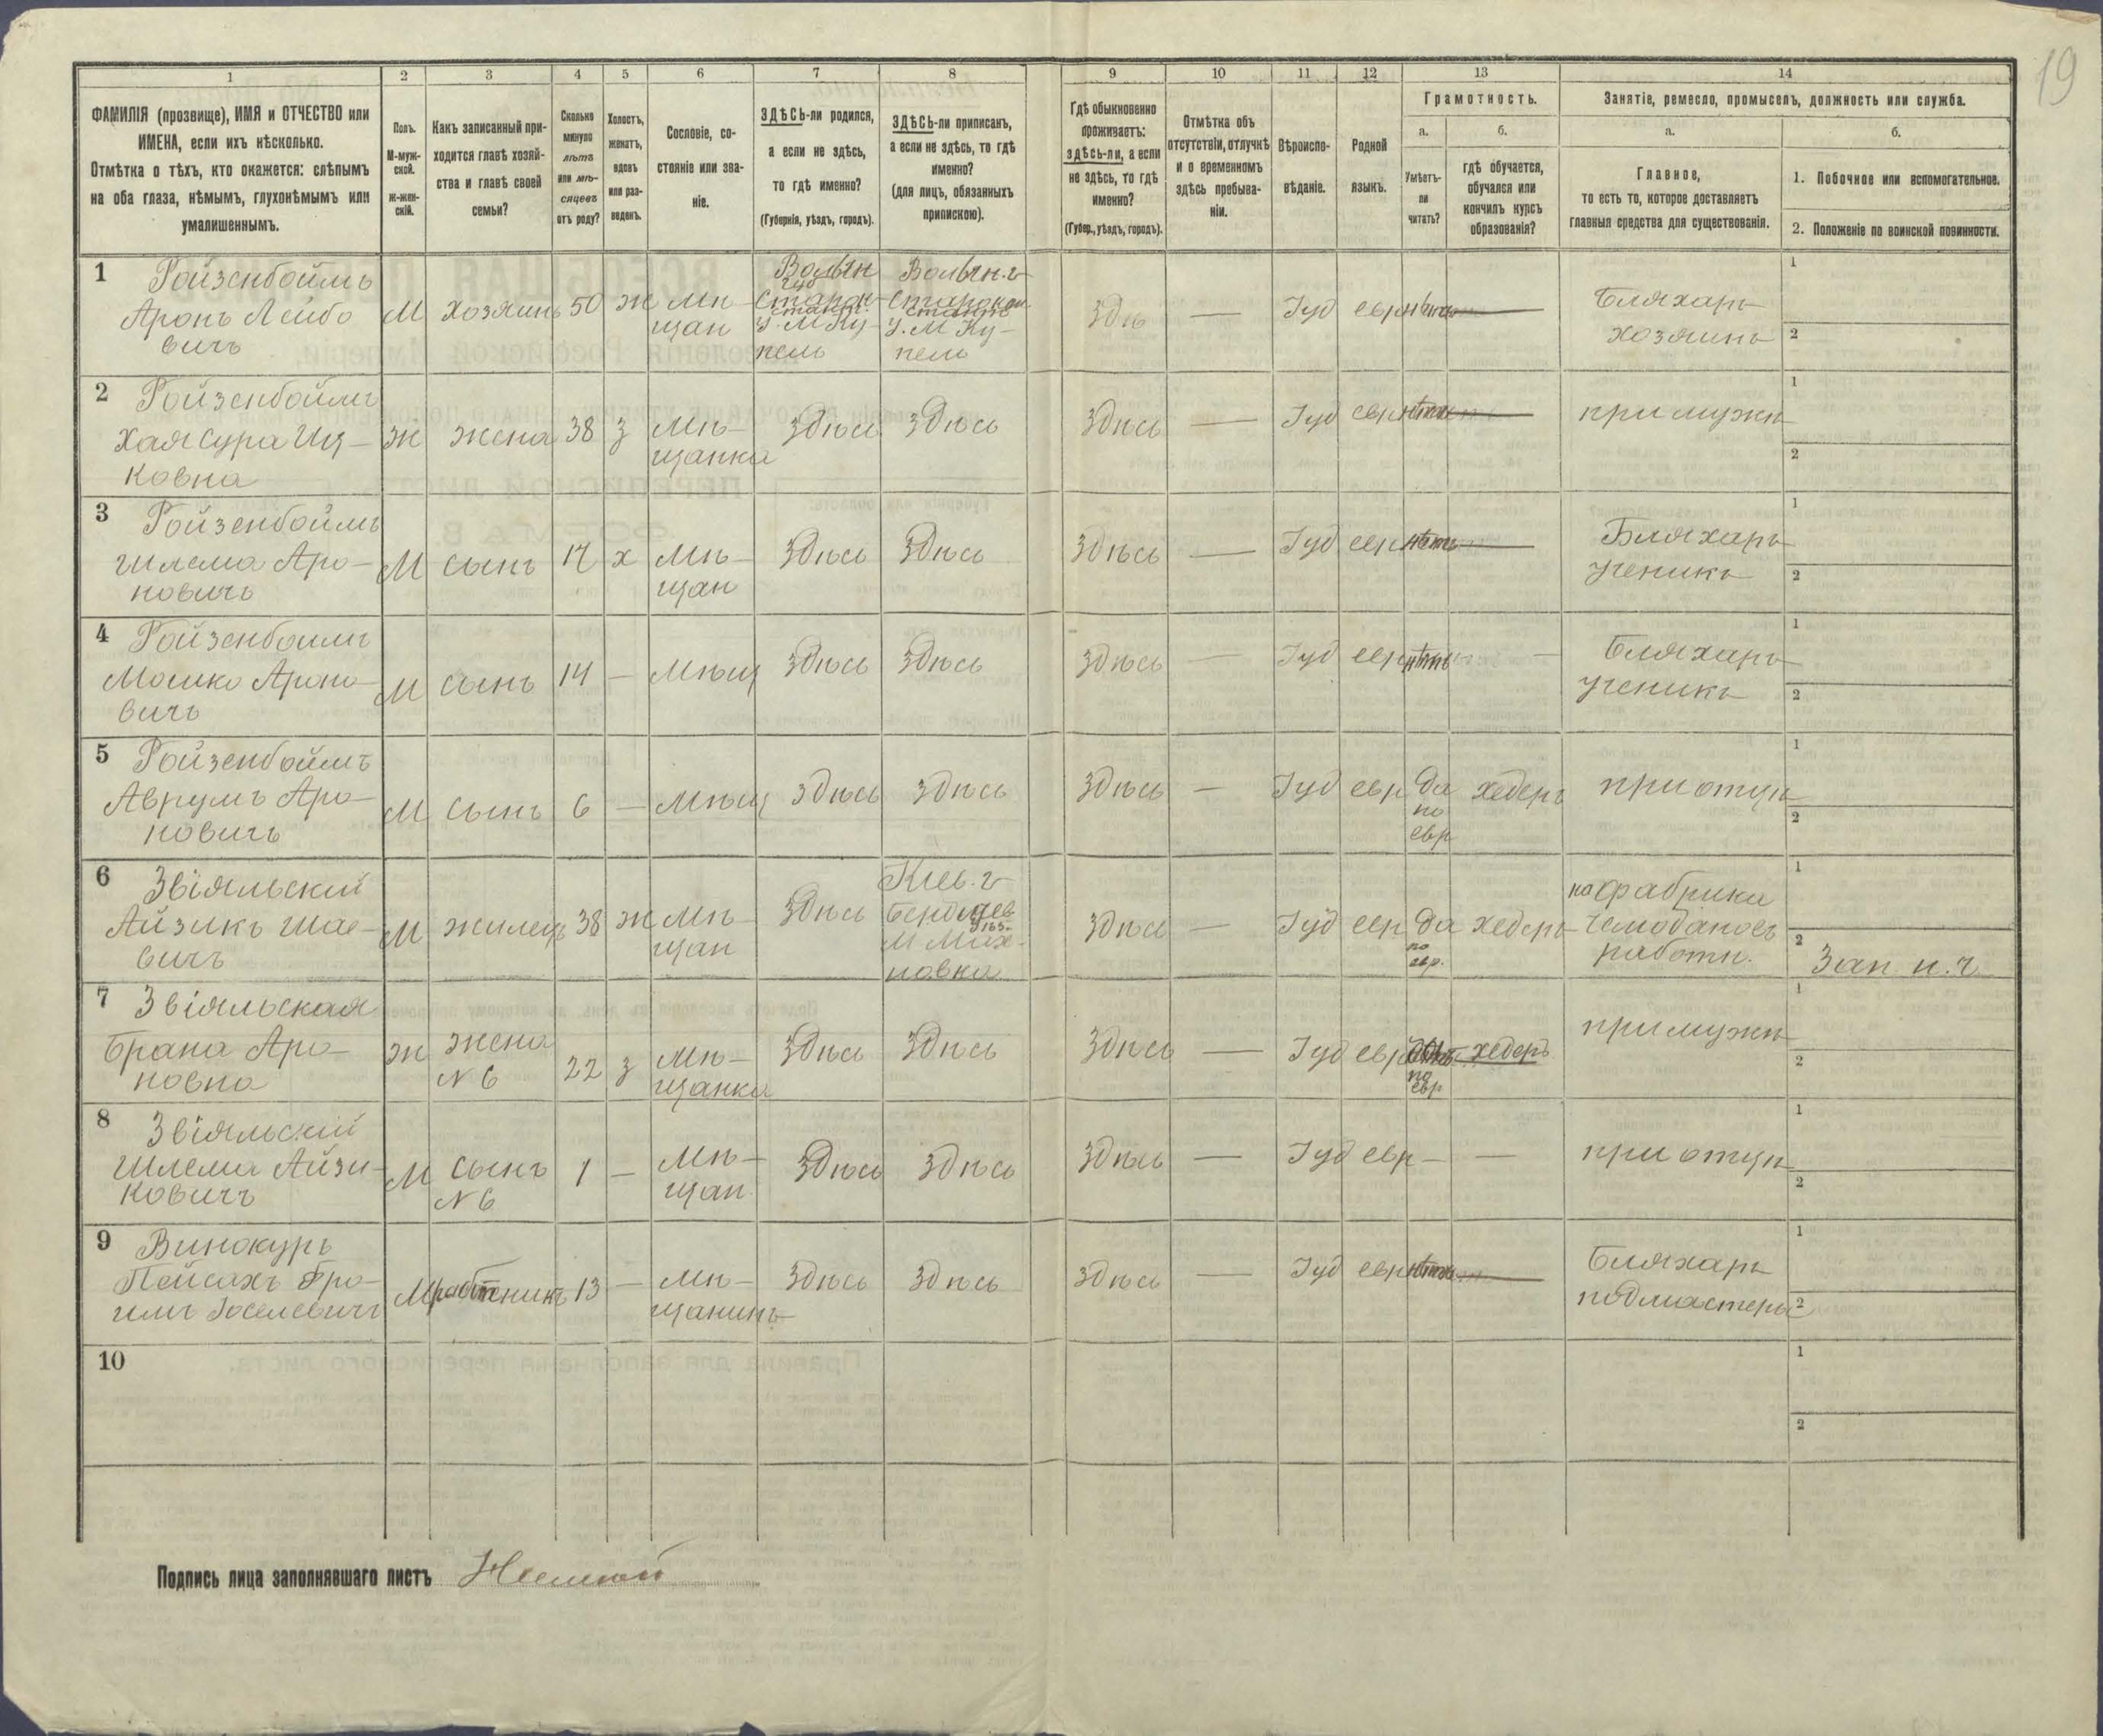 19
1 2 3 4 5 6 7 8 9 10 11 12 13 14
ФАМИЛІЯ (прозвище), ИМЯ и ОТЧЕСТВО или
ИМЕНА, если ихъ нѣсколько.
Отмѣтка о тѣхъ, кто окажется: слѣпымъ
на оба глаза, нѣмымъ, глухонѣмымъ или
умалишеннымъ.
Полъ.
М-муж-
ской.
Ж-жен-
скій.
Какъ записанный при-
ходится главѣ хозяй-
ства и главѣ своей
семьи?
Сколько
минуло
лѣтъ
или мѣ-
сяцевъ
отъ роду?
Холостъ,
женатъ,
вдовъ
или раз-
веденъ.
Сословіе, со-
стояніе или зва-
ніе.
ЗДѢСЬ-ли родился,
а если не здѣсь,
то гдѣ именно?
(Губернія, уѣздъ, городъ).
ЗДѢСЬ-ли приписанъ,
а если не здѣсь, то гдѣ
именно?
(для лицъ, обязанныхъ
припискою).
Гдѣ обыкновенно
проживаетъ:
здѣсь-ли, а если
не здѣсь, то гдѣ
именно?
(Губер., уѣздъ, городъ).
Отмѣтка объ
отсутствіи, отлучкѣ
и о временномъ
здѣсь пребыва-
ніи.
Вѣроиспо-
вѣданіе.
Родной
языкъ.
Грамотность.
а.
Умѣетъ-
ли
читать?
б.
гдѣ обучается,
обучался или
кончилъ курсъ
образованія?
Занятіе, ремесло, промыселъ, должность или служба.
а.
Главное,
то есть то, которое доставляетъ
главныя средства для существованія.
б.
1. Побочное или вспомогательное.
2. Положеніе по воинской повинности.
1
Ройзенбоймъ
Аронъ Лейбо
вичъ
М
хозяинъ
50
Ж
Мѣ-
щан
Волын
губ
Старок-
У. М Ку-
пель
Волын. г
Староко
У. М Ку-
пель
Здѣ
—
Іуд
евр
нѣтъ
—
Бляхарь
хозяинъ
1
2
2
Ройзенбоймъ
Хая Сура Иц-
ковна
Ж
жена
38
З
Мѣ-
щанка
Здѣсь
Здѣсь
Здѣсь
—
Іуд
евр
нѣтъ
—
при мужѣ
1
2
3
Ройзенбоймъ
Шлема Аро-
новичъ
М
сынъ
17
Х
Мѣ-
щан
Здѣсь
Здѣсь
Здѣсь
—
Іуд
евр
нѣтъ
—
Бляхарь
ученикъ
1
2
4
Ройзенбоймъ
Мошко Ароно-
вичъ
М
сынъ
14
—
Мѣщ
Здѣсь
Здѣсь
Здѣсь
—
Іуд
евр
нѣтъ
—
Бляхарь
ученикъ
1
2
5
Ройзенбоймъ
Аврумъ Аро-
новичъ
М
сынъ
6
—
Мѣщ
Здѣсь
Здѣсь
Здѣсь
—
Іуд
евр
да
по
евр
хедеръ
при отцѣ
1
2
6
Звіяльскій
Айзикъ Шае-
вичъ
М
жилецъ
38
Ж
Мѣ-
щан
Здѣсь
Кіев. г
Бердичев
уѣз.
М Мах-
новка
Здѣсь
—
Іуд
евр
да
по
евр.
хедеръ
на фабрики
чемодановъ
работн.
1
2
Зап н. ч
7
Звіяльская
Брана Аро-
новна
Ж
жена
N 6
22
З
Мѣ-
щанка
Здѣсь
Здѣсь
Здѣсь
—
Іуд
евр
по
евр
хедеръ
при мужѣ
1
2
8
Звіяльскій
Шлема Айзи-
ковичъ
М
сынъ
N 6
1
—
Мѣ-
щан
Здѣсь
Здѣсь
Здѣсь
—
Іуд
евр
—
—
при отцѣ
1
2
9
Винокуръ
Пейсахъ Фро-
имъ Іоселевичъ
М
работникъ
13
—
Мѣ-
щанинъ
Здѣсь
Здѣсь
Здѣсь
—
Іуд
евр
нѣтъ
—
Бляхарь
подмастерье
1
2
10
1
2
Подпись лица заполнявшаго листъ